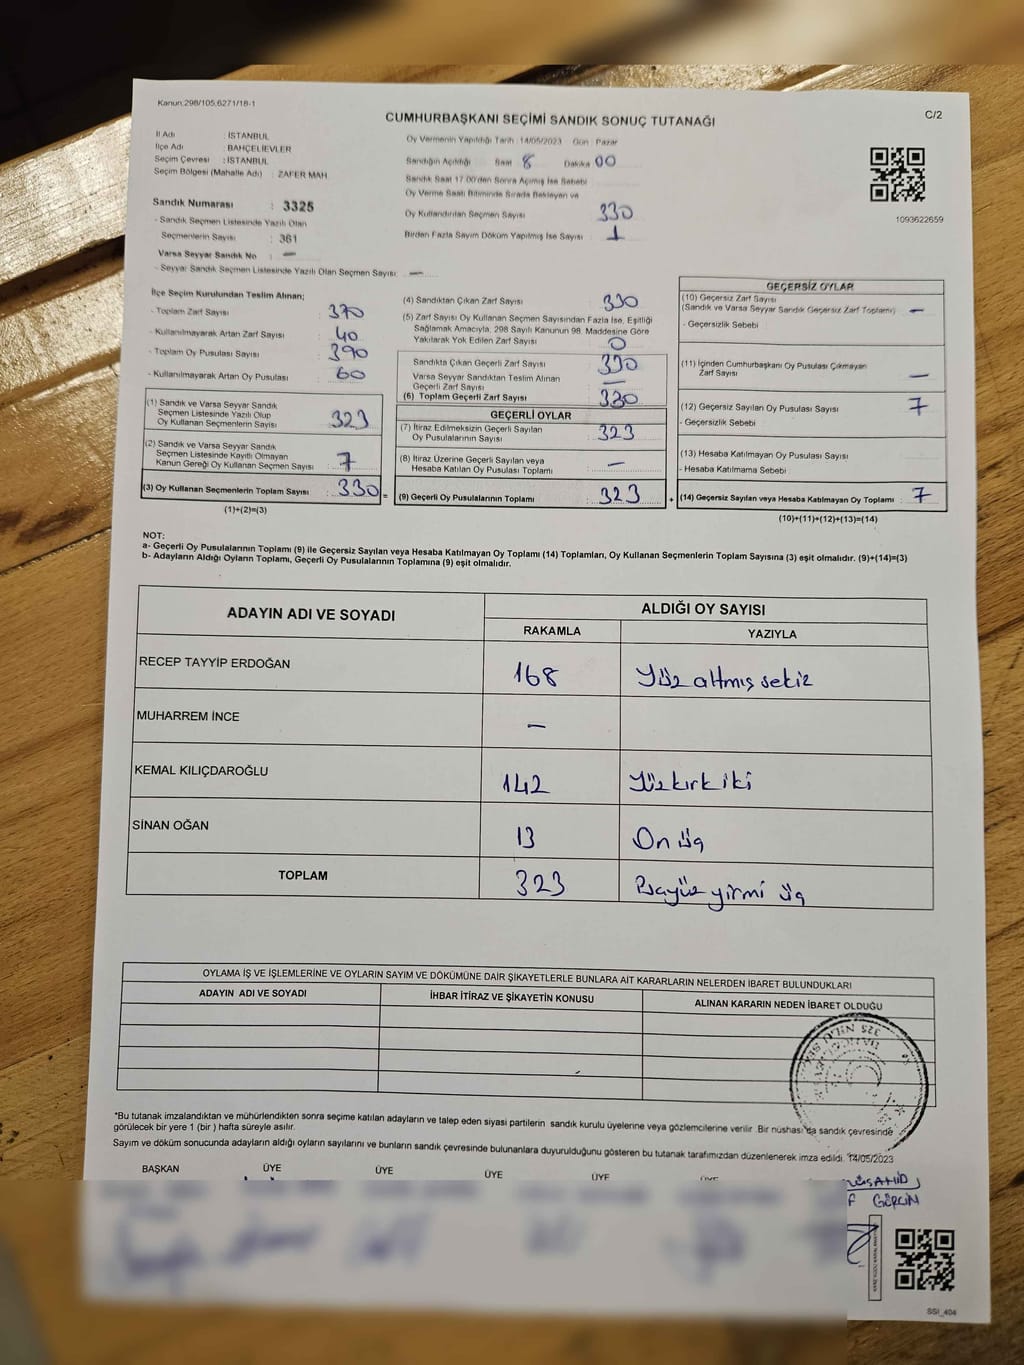 Kanun:298/105,6271/18-1
C/2
CUMHURBAŞKANI SEÇİMİ SANDIK SONUÇ TUTANAĞI
İl Adı : İSTANBUL
İlçe Adı : BAHÇELİEVLER
Seçim Çevresi : İSTANBUL
Seçim Bölgesi (Mahalle Adı) : ZAFER MAH.
Sandık Numarası : 3325
- Sandık Seçmen Listesinde Yazılı Olan
Seçmenlerin Sayısı : 361
Varsa Seyyar Sandık No : —
- Seyyar Sandık Seçmen Listesinde Yazılı Olan Seçmen Sayısı: —
Oy Vermenin Yapıldığı Tarih : 14/05/2023 Gün : Pazar
Sandığın Açıldığı Saat 8 Dakika 00
Sandık Saat 17.00'den Sonra Açımış İse Sebebi
Oy Verme Saati Bitiminde Sırada Bekleyen ve
Oy Kullandırılan Seçmen Sayısı 330
Birden Fazla Sayım Döküm Yapılmış İse Sayısı 1
1093622659
İlçe Seçim Kurulundan Teslim Alınan;
- Toplam Zarf Sayısı : 370
- Kullanılmayarak Artan Zarf Sayısı : 40
- Toplam Oy Pusulası Sayısı : 390
- Kullanılmayarak Artan Oy Pusulası : 60
(1) Sandık ve Varsa Seyyar Sandık
Seçmen Listesinde Yazılı Olup
Oy Kullanan Seçmenlerin Sayısı : 323
(2) Sandık ve Varsa Seyyar Sandık
Seçmen Listesinde Kayıtlı Olmayan
Kanun Gereği Oy Kullanan Seçmen Sayısı : 7
(3) Oy Kullanan Seçmenlerin Toplam Sayısı : 330 =
(1)+(2)=(3)
(4) Sandıktan Çıkan Zarf Sayısı : 330
(5) Zarf Sayısı Oy Kullanan Seçmen Sayısından Fazla İse, Eşitliği
Sağlamak Amacıyla, 298 Sayılı Kanunun 98. Maddesine Göre
Yakılarak Yok Edilen Zarf Sayısı : 0
Sandıkta Çıkan Geçerli Zarf Sayısı : 330
Varsa Seyyar Sandıktan Teslim Alınan
Geçerli Zarf Sayısı : —
(6) Toplam Geçerli Zarf Sayısı : 330
GEÇERLİ OYLAR
(7) İtiraz Edilmeksizin Geçerli Sayılan
Oy Pusulalarının Sayısı : 323
(8) İtiraz Üzerine Geçerli Sayılan veya
Hesaba Katılan Oy Pusulası Toplamı : —
(9) Geçerli Oy Pusulalarının Toplamı : 323 +
GEÇERSİZ OYLAR
(10) Geçersiz Zarf Sayısı
(Sandık ve Varsa Seyyar Sandık Geçersiz Zarf Toplamı) : —
- Geçersizlik Sebebi
(11) İçinden Cumhurbaşkanı Oy Pusulası Çıkmayan
Zarf Sayısı : —
(12) Geçersiz Sayılan Oy Pusulası Sayısı : 7
- Geçersizlik Sebebi
(13) Hesaba Katılmayan Oy Pusulası Sayısı
- Hesaba Katılmama Sebebi
(14) Geçersiz Sayılan veya Hesaba Katılmayan Oy Toplamı : 7
(10)+(11)+(12)+(13)=(14)
NOT:
a- Geçerli Oy Pusulalarının Toplamı (9) ile Geçersiz Sayılan veya Hesaba Katılmayan Oy Toplamı (14) Toplamları, Oy Kullanan Seçmenlerin Toplam Sayısına (3) eşit olmalıdır. (9)+(14)=(3)
b- Adayların Aldığı Oyların Toplamı, Geçerli Oy Pusulalarının Toplamına (9) eşit olmalıdır.
ADAYIN ADI VE SOYADI ALDIĞI OY SAYISI
RAKAMLA YAZIYLA
RECEP TAYYİP ERDOĞAN 168 Yüz altmış sekiz
MUHARREM İNCE —
KEMAL KILIÇDAROĞLU 142 Yüzkırk iki
SİNAN OĞAN 13 On üç
TOPLAM 323 üçyüz yirmi üç
OYLAMA İŞ VE İŞLEMLERİNE VE OYLARIN SAYIM VE DÖKÜMÜNE DAİR ŞİKAYETLERLE BUNLARA AİT KARARLARIN NELERDEN İBARET BULUNDUKLARI
ADAYIN ADI VE SOYADI İHBAR İTİRAZ VE ŞİKAYETİN KONUSU ALINAN KARARIN NEDEN İBARET OLDUĞU
*Bu tutanak imzalandıktan ve mühürlendikten sonra seçime katılan adayların ve talep eden siyasi partilerin sandık kurulu üyelerine veya gözlemcilerine verilir .Bir nüshası da sandık çevresinde
görülecek bir yere 1 (bir ) hafta süreyle asılır.
Sayım ve döküm sonucunda adayların aldığı oyların sayılarını ve bunların sandık çevresinde bulunanlara duyurulduğunu gösteren bu tutanak tarafımızdan düzenlenerek imza edildi. 14/05/2023
BAŞKAN ÜYE ÜYE ÜYE ÜYE ÜYE
SSI_404